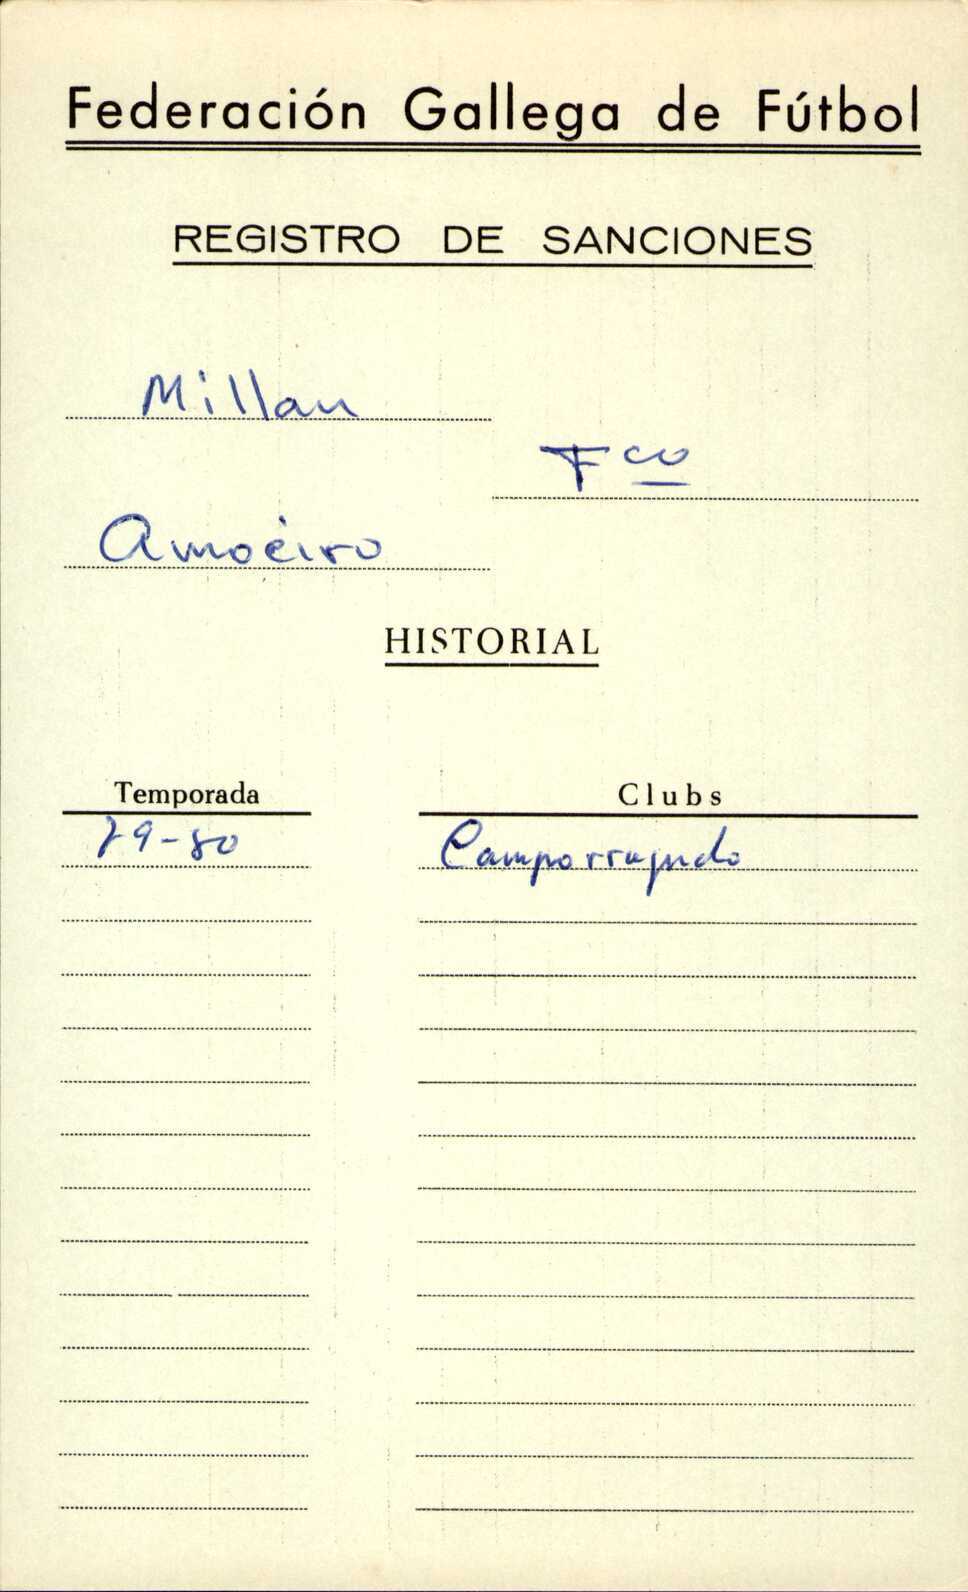 Federación Gallega de Fútbol
REGISTRO DE SANCIONES
Millan
Fco
Amoeiro
HISTORIAL
Temporada Clubs
79-80 Camporrapado